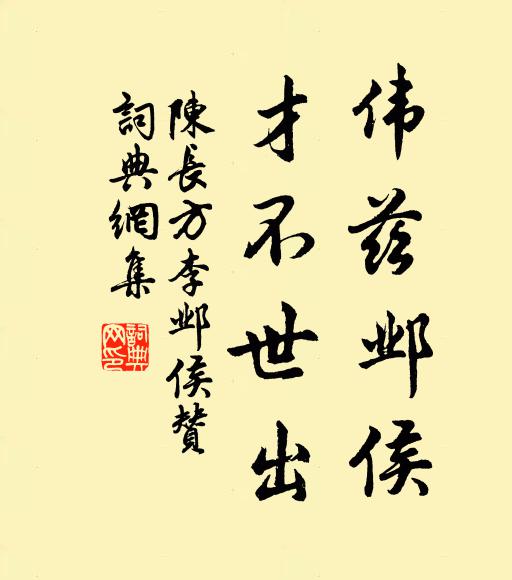 伟兹邺侯
才不世出
陳長方李邺侯贊
詞典網集
詞典網印